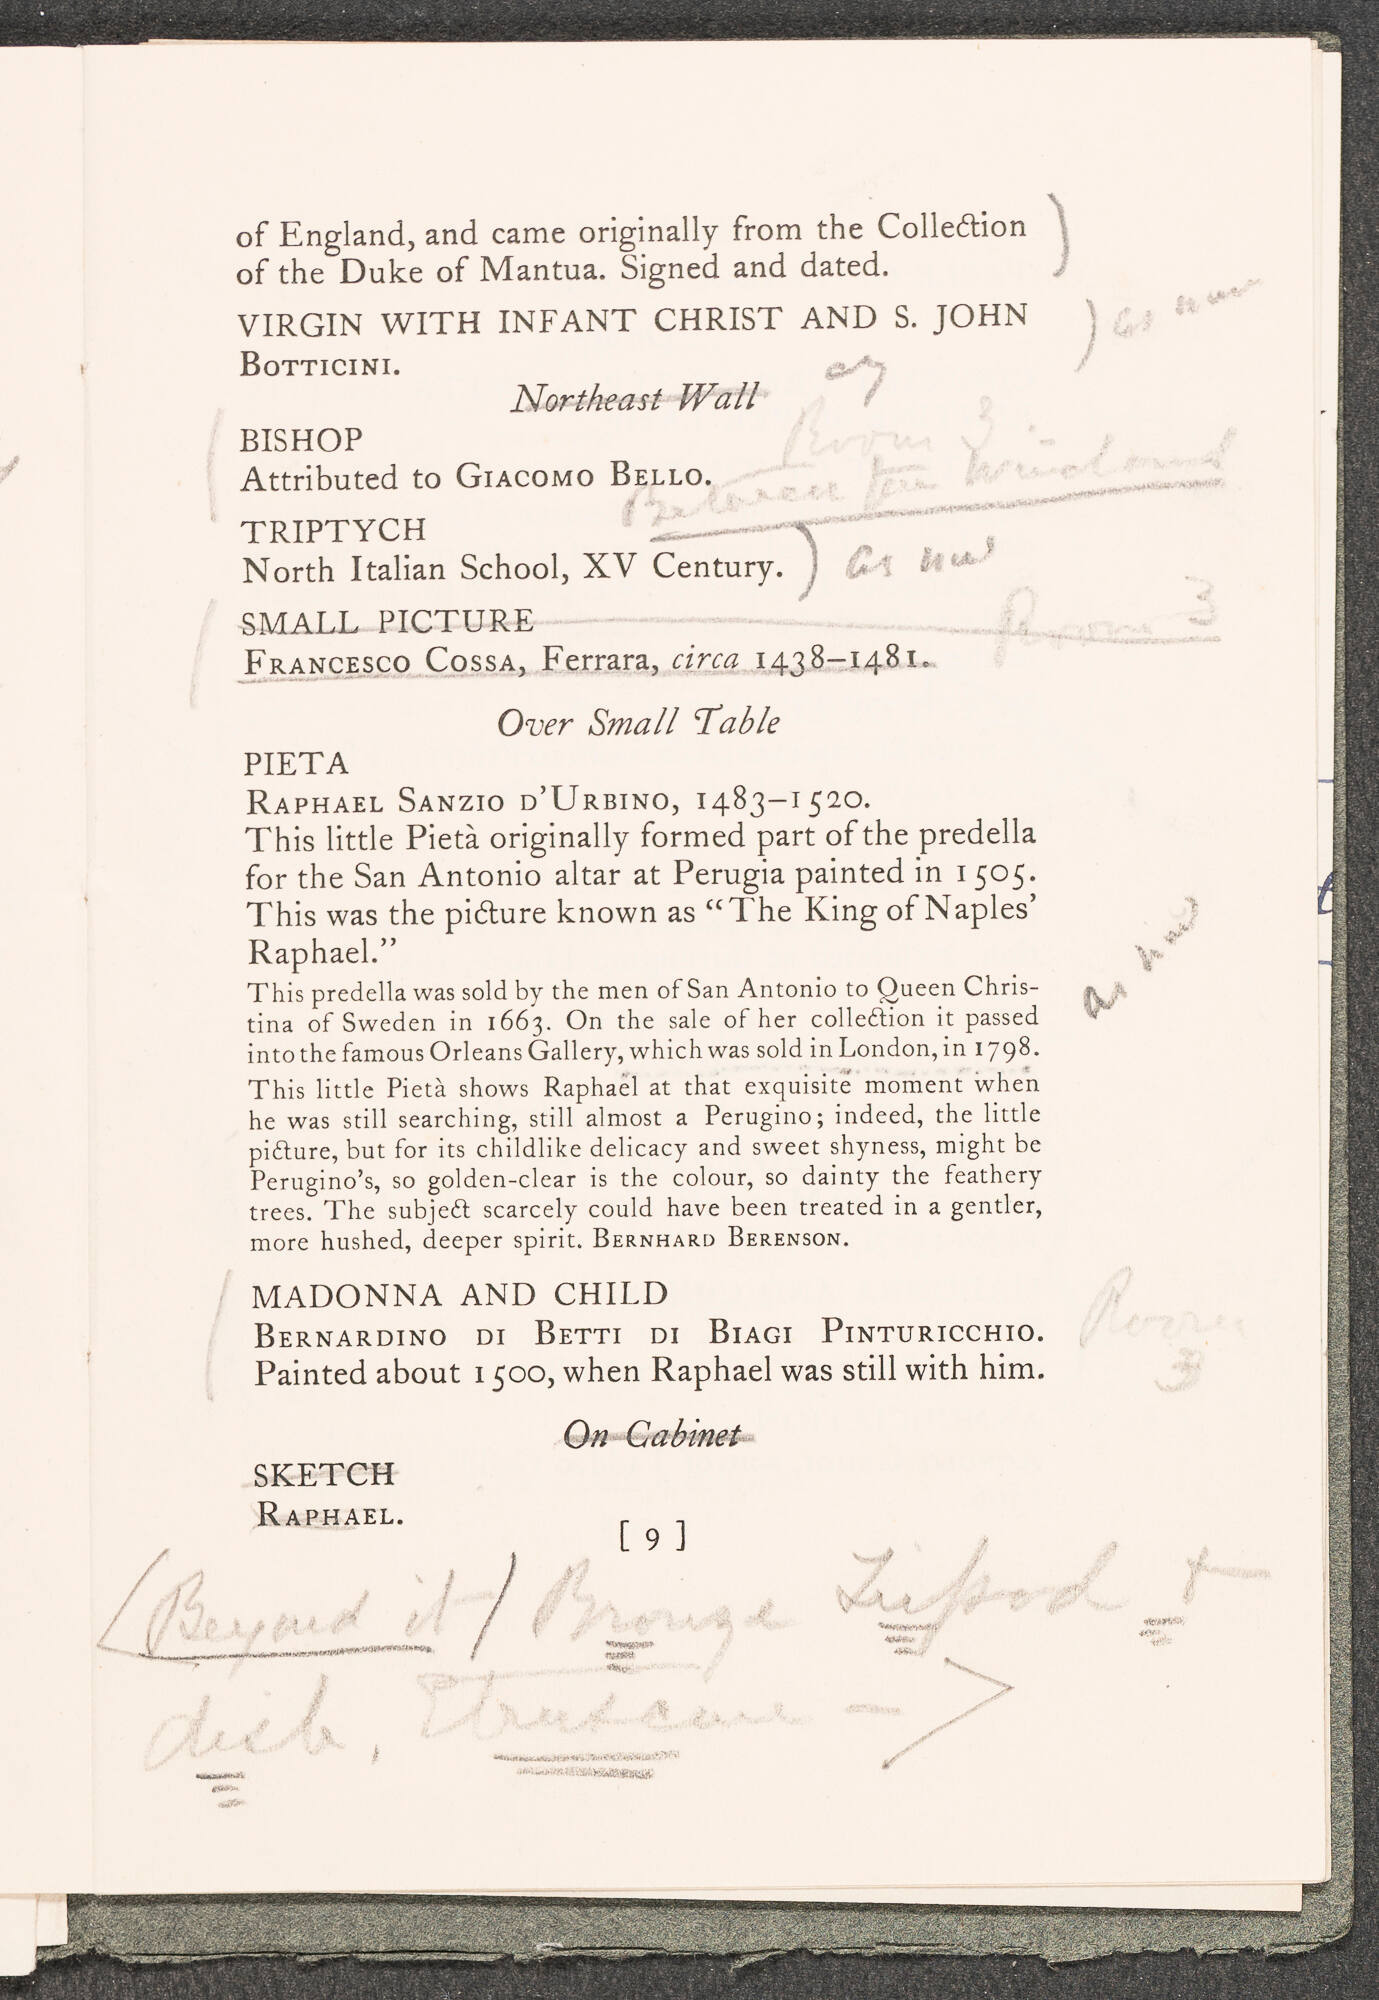 of England, and came originally from the Collection
of the Duke of Mantua. Signed and dated.
VIRGIN WITH INFANT CHRIST AND S. JOHN
as now
BOTTICINI.
Northeast Wall
BISHOP
Room 3
Attributed to GIACOMO BELLO.
Between
TRIPTYCH
North Italian School, XV Century.
as now
SMALL PICTURE
Room 3
FRANCESCO COSSA, Ferrara, circa 1438–1481.
Over Small Table
PIETA
RAPHAEL SANZIO D'URBINO, 1483–1520.
This little Pietà originally formed part of the predella
for the San Antonio altar at Perugia painted in 1505.
This was the picture known as “The King of Naples'
Raphael.”
as now
This predella was sold by the men of San Antonio to Queen Chris-
tina of Sweden in 1663. On the sale of her collection it passed
into the famous Orleans Gallery, which was sold in London, in 1798.
This little Pietà shows Raphael at that exquisite moment when
he was still searching, still almost a Perugino; indeed, the little
picture, but for its childlike delicacy and sweet shyness, might be
Perugino's, so golden-clear is the colour, so dainty the feathery
trees. The subject scarcely could have been treated in a gentler,
more hushed, deeper spirit. BERNHARD BERENSON.
MADONNA AND CHILD
BERNARDINO DI BETTI DI BIAGI PINTURICCHIO.
Painted about 1500, when Raphael was still with him.
Room
3
On Cabinet
SKETCH
RAPHAEL.
[ 9 ]
(Beyond it) Bronze Tripod &
dish, Etruscan —